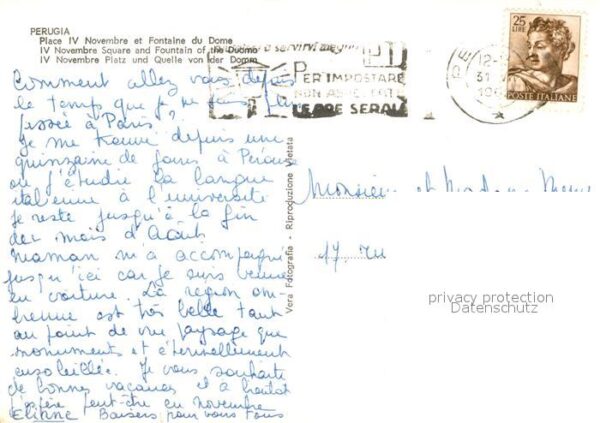 PERUGIA
Place IV Novembre et Fontaine du Dome
IV Novembre Square and Fountain of the Duomo
IV Novembre Platz und Quelle von der Domm
Comment allez vous depuis
le temps que je ne suis pas
passée à Paris?
Je me trouve depuis une
quinzaine de jours à Pérouse
où j'étudie la langue
italienne à l'université
Je reste jusqu'à la fin
des mois d'Août.
Maman m'a accompagné
jusqu'ici car je suis venue
en voiture. La région om-
brienne est très belle tant
au point de vue paysage que
monuments et éternellement
ensoleillée. Je vous souhaite
de bonnes vacances et à bientôt
j'espère peut-être en novembre
Eliane Baisers pour vous tous
Vera Fotografia - Riproduzione vietata
servirvi meglio
PER IMPOSTARE
NON ASPETTATE
LE ORE SERALI
25
LIRE
POSTE ITALIANE
Monsieur et Madame
17 ru
privacy protection
Datenschutz